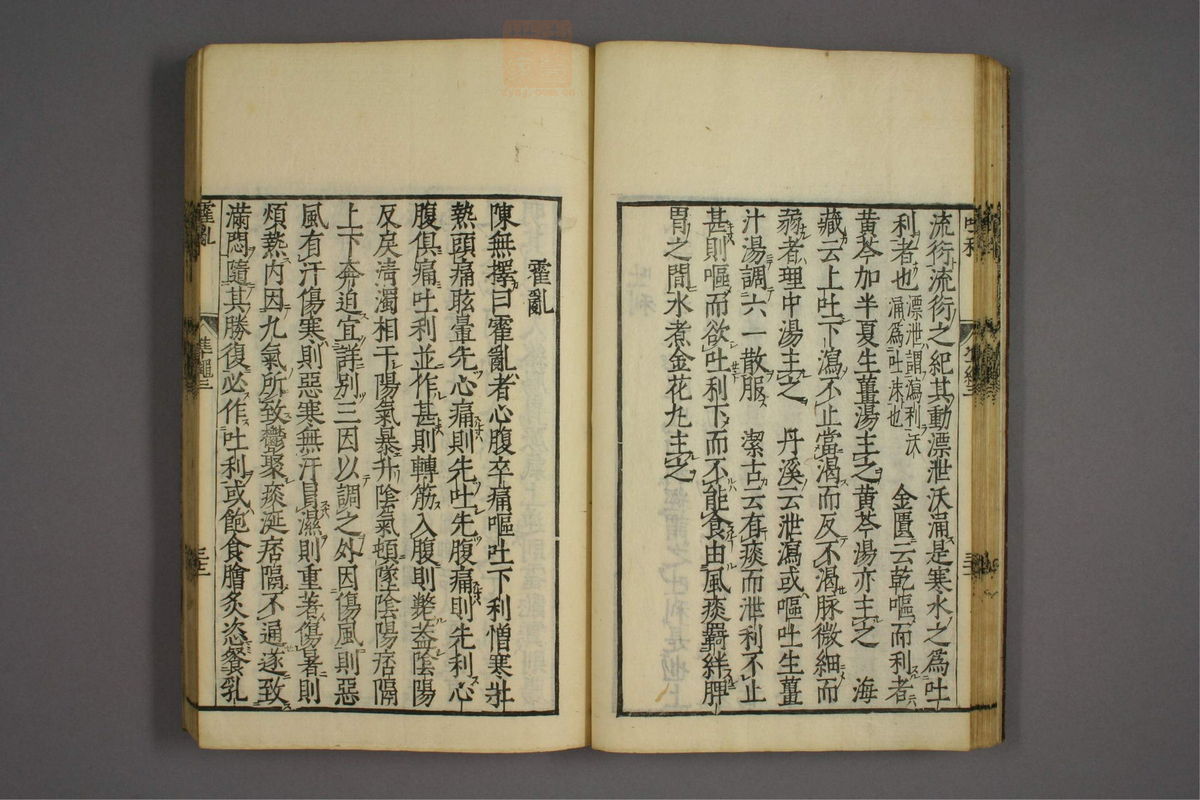 流衍流衍之紀其動漂泄沃涌是寒水之爲吐
利者也 漂泄謂瀉利沃
涌爲吐沫也 金匱云乾嘔而利者
黃芩加半夏生薑湯主之黃芩湯亦主之 海
藏云上吐下瀉不止當渴而反不渴脉微細而
弱者理中湯主之 丹溪云泄瀉或嘔吐生薑
汁湯調六一散服 潔古云有痰而泄利不止
甚則嘔而欲吐利下而不能食由風痰羈絆脾
胃之間水煮金花丸主之
霍亂
陳無擇曰霍亂者心腹卒痛嘔吐下利憎寒壯
熱頭痛眩暈先心痛則先吐先腹痛則先利心
腹俱痛吐利並作甚則轉筋入腹則斃蓋陰陽
反戾清濁相干陽氣暴升陰氣頓墜陰陽痞隔
上下奔迫宜詳別三因以調之外因傷風則惡
風有汗傷寒則惡寒無汗冒濕則重著傷暑則
煩熱內因九氣所致鬱聚痰涎痞隔不通遂致
滿悶隨其勝復必作吐利或飽食膾炙恣餐乳
霍亂
準繩三